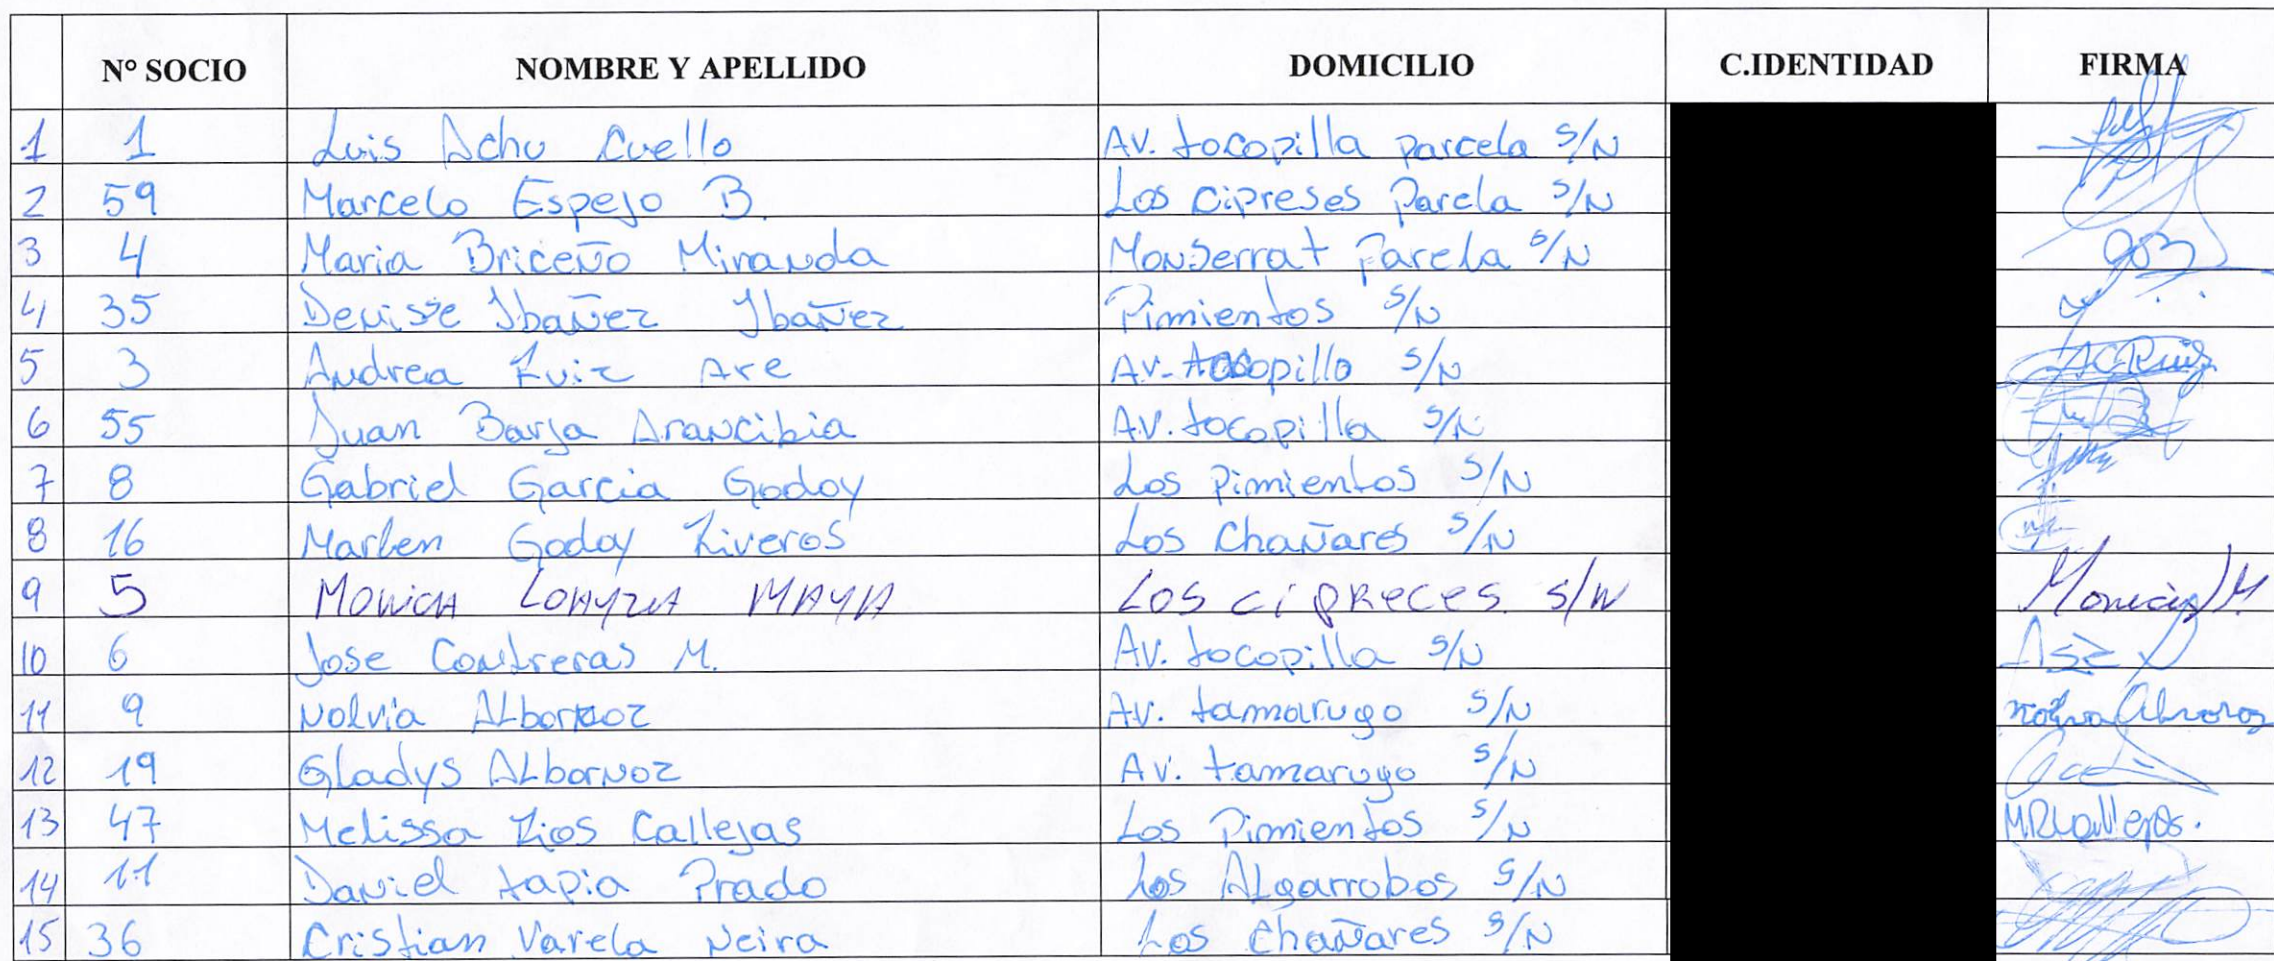 N° SOCIO NOMBRE Y APELLIDO DOMICILIO C.IDENTIDAD FIRMA
1 1 Luis Achu Cuello Av. tocopilla parcela S/N
2 59 Marcelo Espejo B. Los cipreses Parela S/N
3 4 Maria Briceño Miranda Monserrat Parela S/N
4 35 Denisse Ibañez Ibañez Pimientos S/N
5 3 Andrea Ruiz Are Av. tocopillo S/N ACRuiz
6 55 Juan Barja Arancibia Av. tocopilla S/N
7 8 Gabriel Garcia Godoy Los Pimientos S/N
8 16 Marlen Godoy Riveros Los Chañares S/N
9 5 MONICA LOAYZA MAYA LOS CIPRECES S/N Monica M.
10 6 Jose Contreras M. Av. tocopilla S/N
11 9 Nolvia Albornoz Av. tamarugo S/N
12 19 Gladys Albornoz Av. tamarugo S/N
13 47 Melissa Rios Callejas Los Pimientos S/N
14 11 Daniel tapia Prado Los Algarrobos S/N
15 36 Cristian Varela Neira Los Chañares S/N